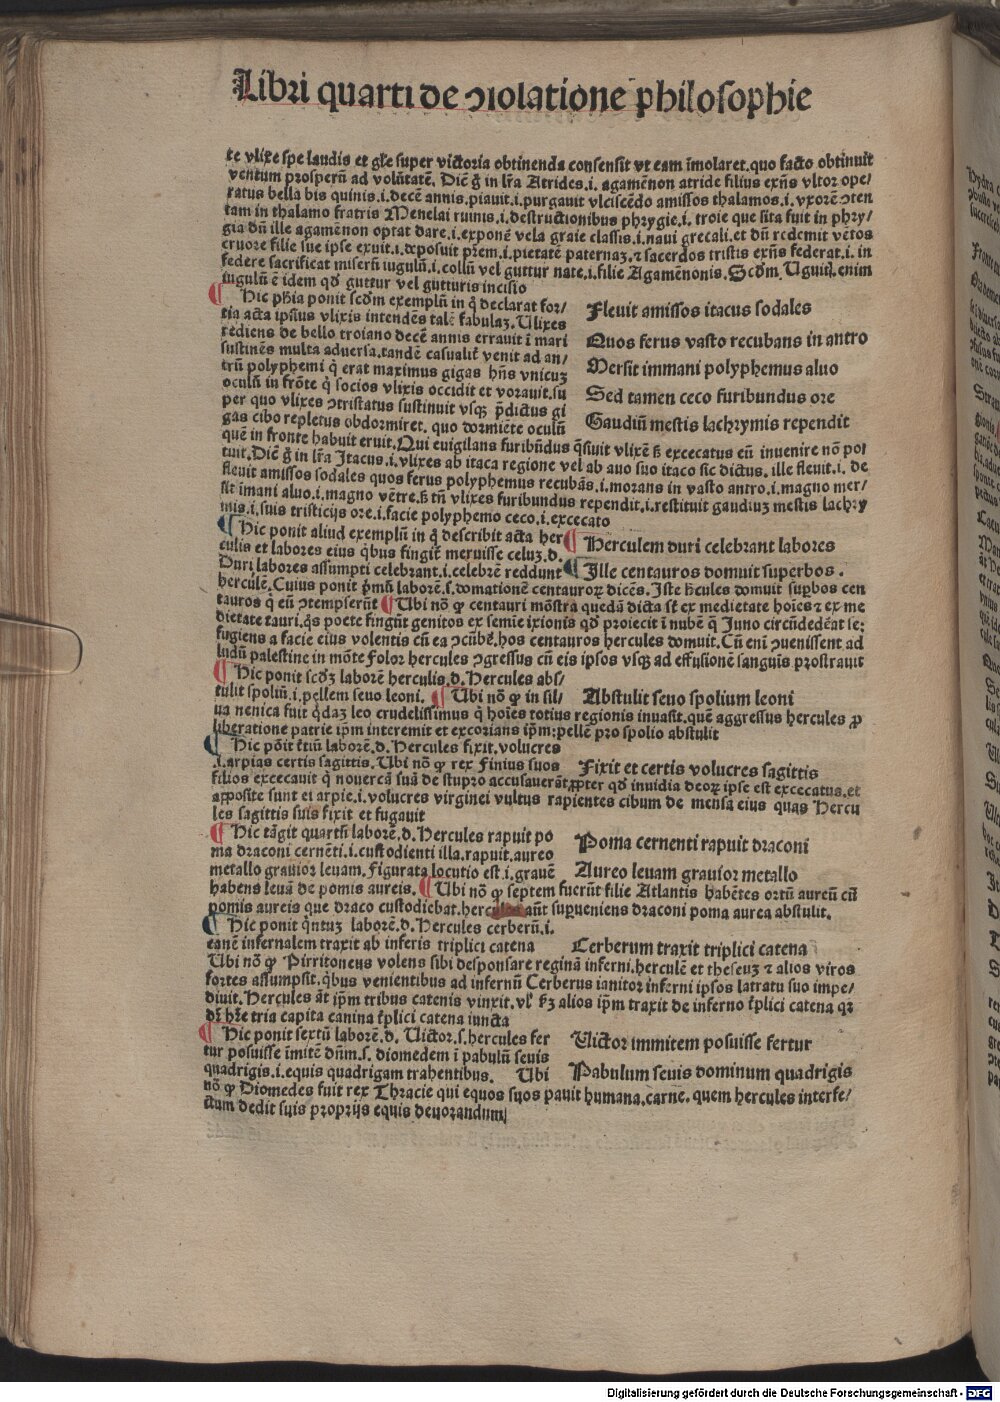 Libri quarti de ↄsolatione philosophie
te vlixe spe laudis et głe super victoria obtinenda consensit vt eam īmolaret.quo facto obtinuit
ventum prosperū ad volūtatē. Diē ḡ in lr̄a Atrides.i. agamēnon atride filius exn̄s vltor ope/
ratus bella bis quinis.i.decē annis.piauit.i.purgauit vlciscēdo amissos thalamos.i.vxorē ↄten
tam in thalamo fratris Menelai ruinis.i.destructionibus phrygie.i. troie que sita fuit in phry/
gia dū ille agamēnon optat dare.i.exponē vela graie classis.i.naui grecali.et dū redemit vētos
cruore filie sue ipse exuit.i.deposuit pr̄em.i.pietatē paternaꝫ.⁊ sacerdos tristis exn̄s federat.i. in
federe sacrificat miserū iugulū.i.collū vel guttur nate.i.filie Agamēnonis. Scd̄m. Uguiꝉ.enim
iugulū ē idem qđ guttur vel gutturis incisio
Hic ph̄ia ponit scd̄m exemplū in q̇ declarat for/
tia acta ipsius vlixis intendēs talē fabulaꝫ. Ulixes
rediens de bello troiano decē annis errauit ī mari
sustinēs multa aduersa.tandē casualiť venit ad an/
trū polyphemi q̇ erat maximus gigas hn̄s vnicuꝫ
oculū in frōte q̇ socios vlixis occidit et vorauit.su
per quo vlixes ↄtristatus sustinuit vsqꝫ p̄dictus gi
gas cibo repletus obdormiret. quo dormiēte oculū
Fleuit amissos itacus sodales
Quos ferus vasto recubans in antro
Mersit immani polyphemus aluo
Sed tamen ceco furibundus ore
Gaudiū mestis lachrymis rependit
quē in fronte habuit eruit. Qui euigilans furibūdus q̄siuit vlixē ꝫ excecatus eū inuenire nō po/
tuit. Diē ḡ in lr̄a Itacus.i.vlixes ab itaca regione vel ab auo suo itaco sic dictus. ille fleuit.i. de
fleuit amissos sodales quos ferus polyphemus recubās.i.morans in vasto antro.i.magno mer/
sit imani aluo.i.magno vētre.ꝫ tn̄ vlixes furibundus rependit.i.restituit gaudiuꝫ mestis lachry
mis.i.suis tristicijs ore.i.facie polyphemo ceco.i.excecato
Hic ponit aliud exemplū in q̇ describit acta her
culis et labores eius q̇bus fingiť meruisse celuꝫ.d.
Duri labores assumpti celebrant.i.celebrē reddunt
Herculem duri celebrant labores
Ille centauros domuit superbos.
herculē. Cuius ponit p̄mū laborē.s.domationē centauroꝝ dicēs. Iste h̄cules domuit sup̱bos cen
tauros q̇ eū ↄtempserūt Ubi nō ꝙ centauri mōstra quedā dicta sť ex medietate hoīes ⁊ ex me
dietate tauri.q̄s poete fingūt genitos ex semie ixionis qđ proiecit ī nubē q̄ Juno circūdedeat se:
fugiens a facie eius volentis cū ea ↄcūbē.hos centauros hercules domuit. Cū enī ↄuenissent ad
ludū palestine in mōte foloꝫ hercules ↄgressus cū eis ipsos vsqꝫ ad effusionē sanguis prostrauit
Hic ponit scđꝫ laborē herculis.d.Hercules abs/
tulit spoliū.i.pellem seuo leoni. Ubi nō ꝙ in sil/
Abstulit seuo spolium leoni
ua nenica fuit q̇daꝫ leo crudelissimus q̇ hoīes totius regionis inuasit.quē aggressus hercules ꝓ
liberatione patrie ip̄m interemit et excorians ip̄m:pellē pro spolio abstulit
Hic pōit ťtiū laborē.d.Hercules fixit.volucres
.i.arpias certis sagittis. Ubi nō ꝙ rex Finius suos
Fixit et certis volucres sagittis
filios excecauit q̇ nouercā suā de stupro accusauerāt.ꝓpter qđ inuidia deoꝝ ipse est excecatus.et
apposite sunt ei arpie.i.volucres virginei vultus rapientes cibum de mensa eius quas Hercu
les sagittis suis fixit et fugauit
Hic tāgit quartū laborē.d.Hercules rapuit po
ma draconi cernēti.i.custodienti illa.rapuit.aureo
metallo grauior leuam.figurata locutio est.i.grauē
Poma cernenti rapuit draconi
Aureo leuam grauior metallo
habens leuā de pomis aureis. Ubi nō ꝙ septem fuerūt filie Atlantis habētes ortū aureū cū
pomis aureis que draco custodiebat.hercules aūt sup̱ueniens draconi poma aurea abstulit.
Hic ponit q̇ntuꝫ laborē.d.Hercules cerberū.i.
canē infernalem traxit ab inferis triplici catena
Cerberum traxit triplici catena
Ubi nō ꝙ Pirritoneus volens sibi desponsare reginā inferni.herculē et theseuꝫ ⁊ alios viros
fortes assumpsit.q̇bus venientibus ad infernū Cerberus ianitor inferni ipsos latratu suo impe/
diuit. Hercules āt ip̄m tribus catenis vinxit.vł ꝫm alios ip̄m traxit de inferno ťplici catena qꝛ
dr̄ hr̄e tria capita canina ťplici catena iuncta
Hic ponit sextū laborē.d. Victor.s.hercules fer
tur posuisse īmitē dn̄m.s. diomedem ī pabulū seuis
quadrigis.i.equis quadrigam trahentibus. Ubi
Victor immitem posuisse fertur
Pabulum seuis dominum quadrigis
nō ꝙ Diomedes fuit rex Thracie qui equos suos pauit humana.carne. quem hercules interfe/
ctum dedit suis proprijs equis deuorandum
Digitalisierung gefördert durch die Deutsche Forschungsgemeinschaft - DFG